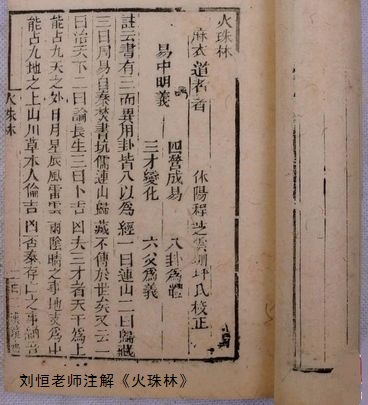 火珠林
麻衣道者著 休陽程芝雲坪氏校正
易中明義
四營成易 八卦為體
三才變化 六爻為義
註云書有三而異用卦皆八以為經一曰連山二曰歸藏
三曰周易自秦焚書坑儒連山歸藏不傳於世矣又云一
曰治天下二曰論長生三曰卜吉凶夫三才者天干為上
能占九天之外日月星辰風雷雲雨陰晴之事地支為中
能占九地之上山川草木人倫吉凶否泰存亡之事納音
火珠林
刘恒老师注解《火珠林》